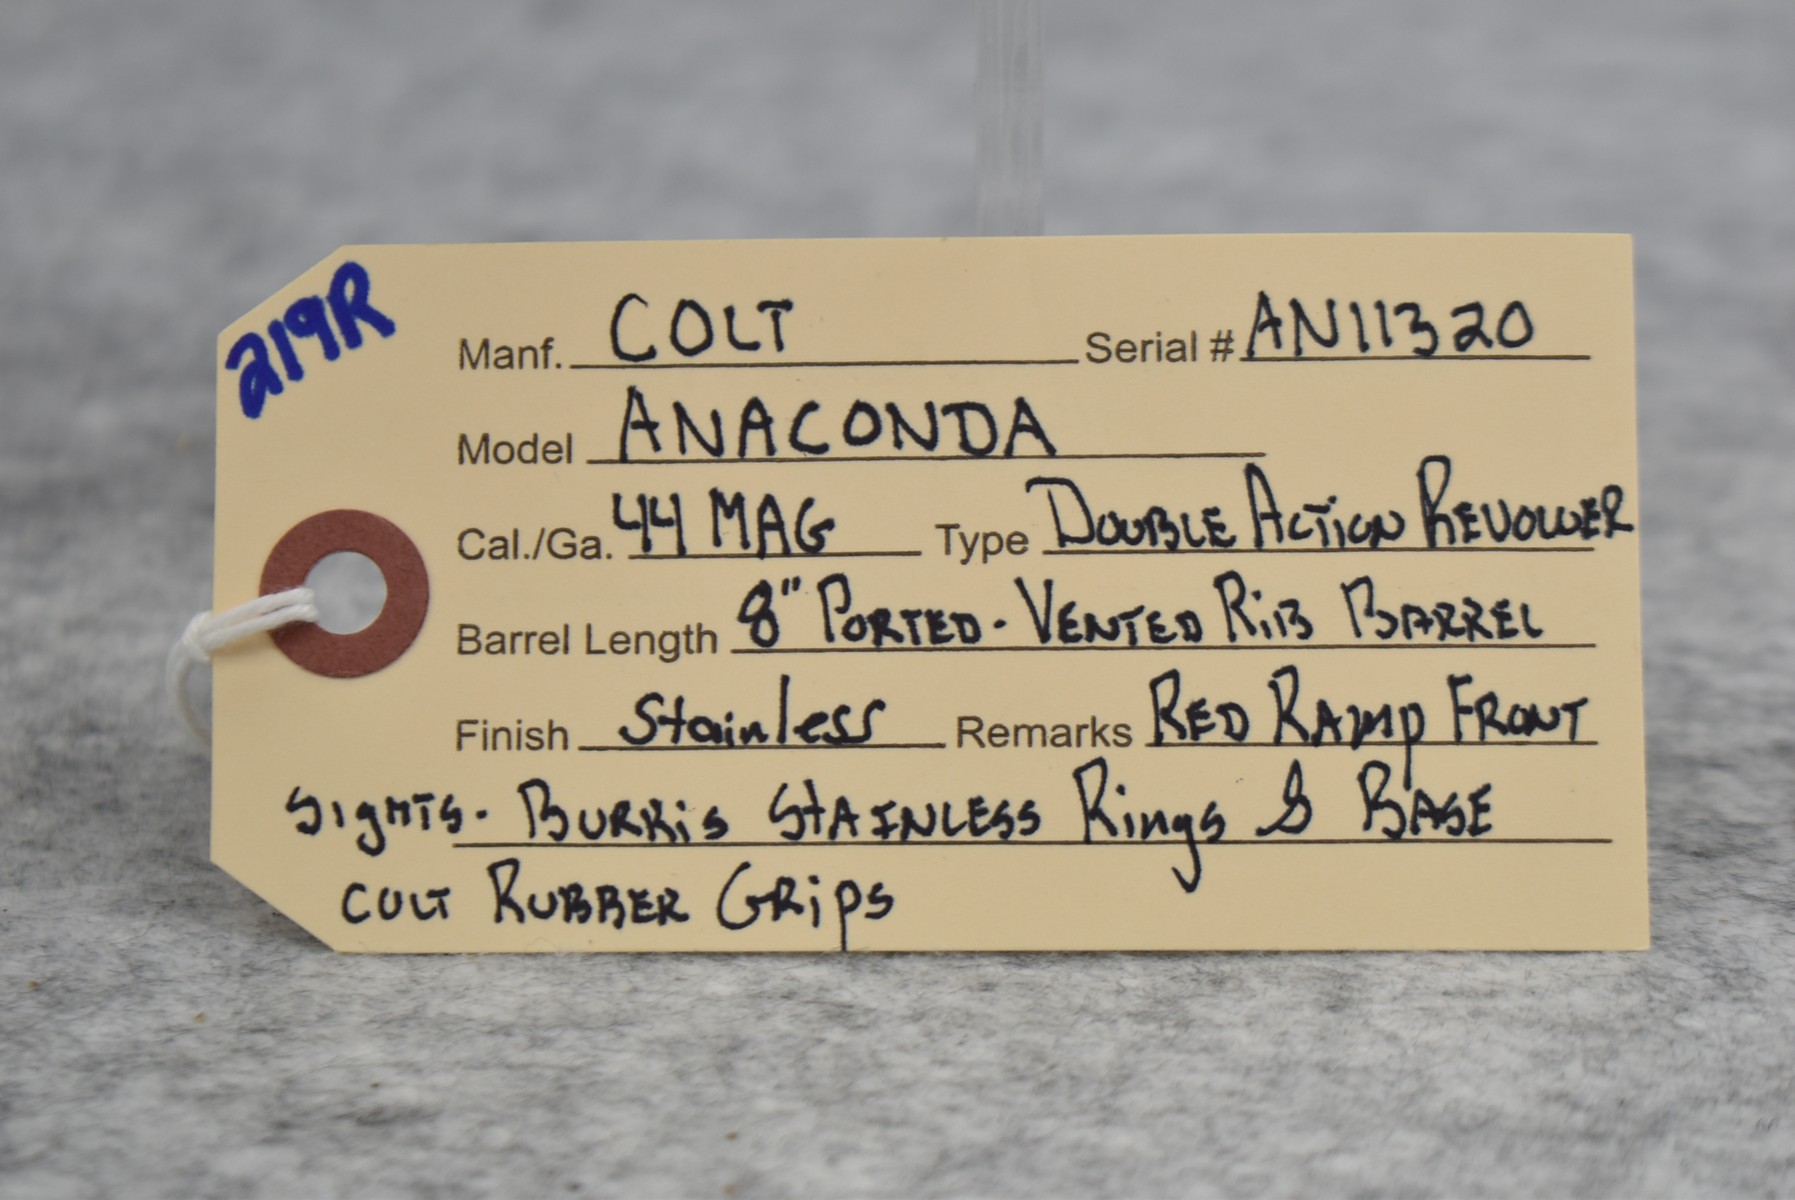 219R
Manf. COLT Serial # AN11320
Model ANACONDA
Cal./Ga. 44 MAG Type DOUBLE ACTION REVOLVER
Barrel Length 8" PORTED - VENTED RiB BARREL
Finish Stainless Remarks RED RAMP FRONT
SIgHTS - BURRis STAINLESS Rings & BASE
COLT RUBBER GRips